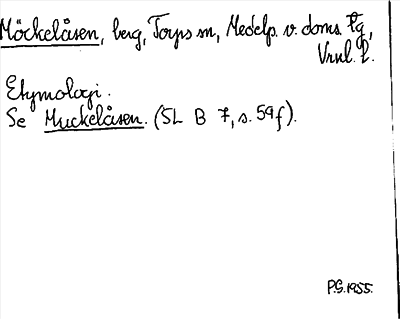 Möckelåsen, berg, Torps sn, Medelp. v. doms. tg,
Vrnl. l.
Etymologi.
Se Muckelåsen. (SL B 7, s. 59 f).
P.G. 1955.